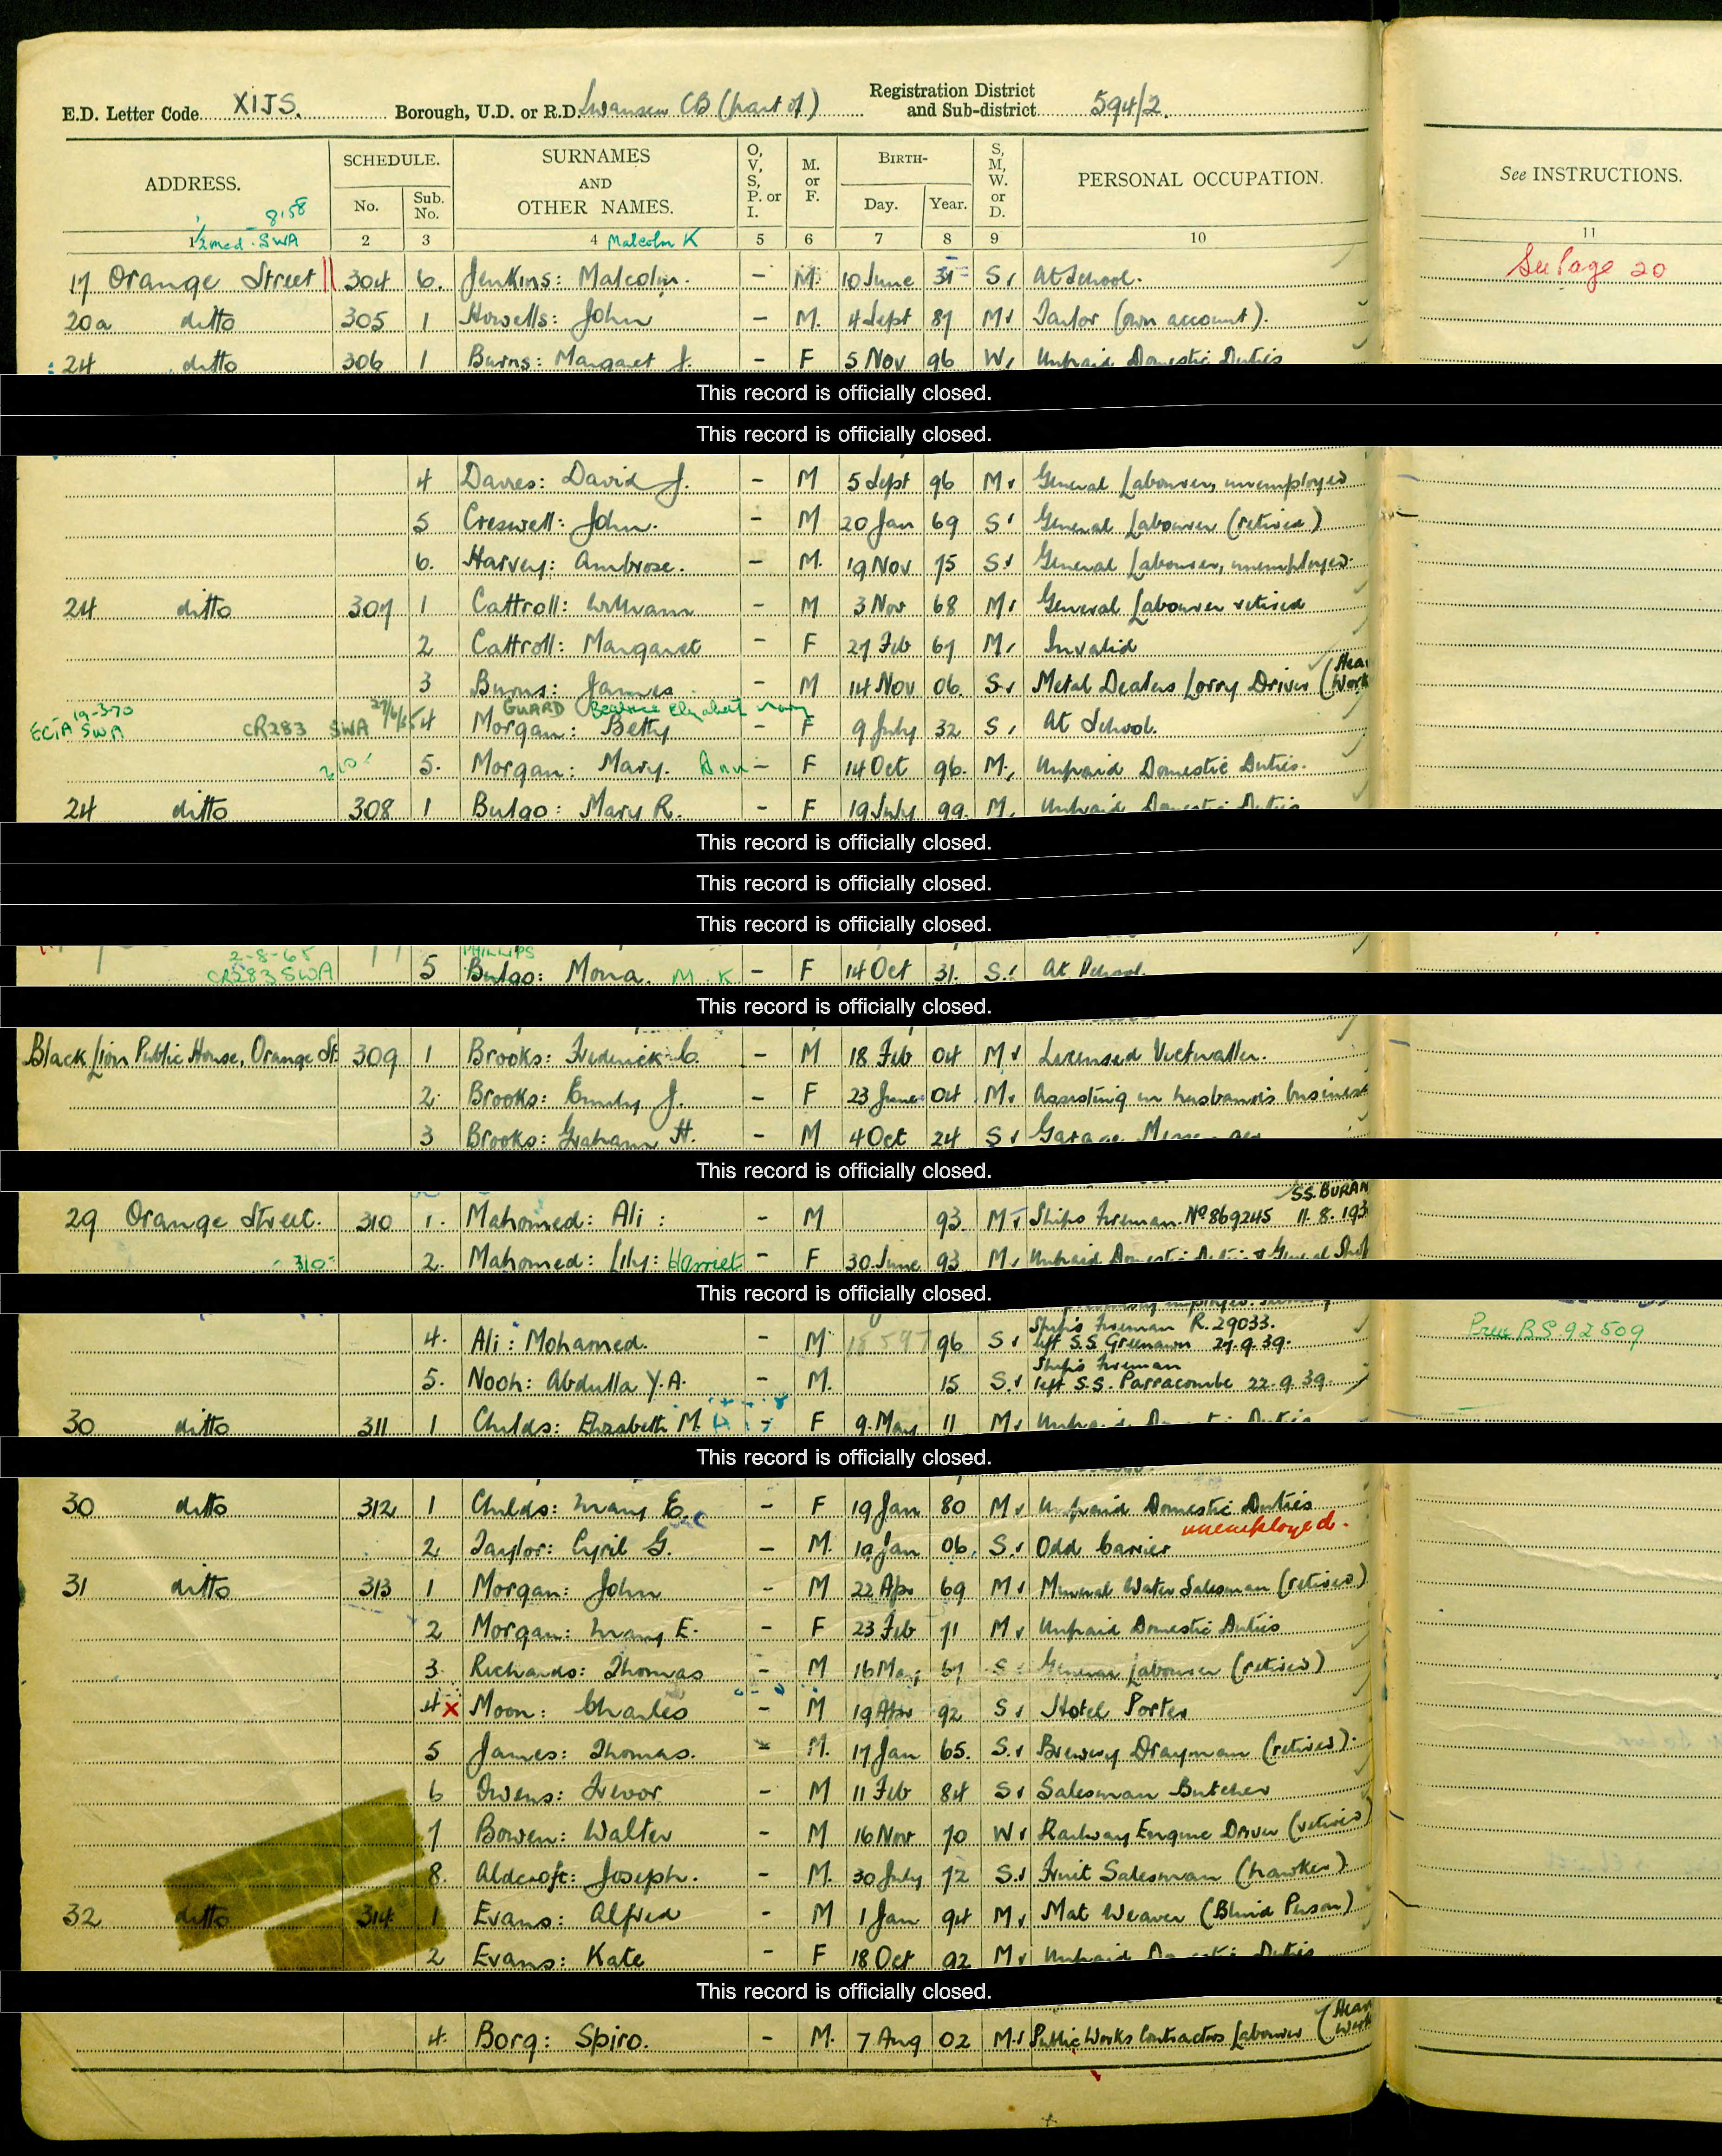 E.D. Letter Code XIJS. Borough, U.D. or R.D. Swansea CB (part of) Registration District and Sub-district 594/2.
ADDRESS. SCHEDULE. No. Sub. No. SURNAMES AND OTHER NAMES. O, V, S, P. or I. M. or F. BIRTH- Day. Year. S, M, W. or D. PERSONAL OCCUPATION. See INSTRUCTIONS.
8.58
1 2 3 4 5 6 7 8 9 10 11
SWA Malcolm K
17 Orange Street 304 6. Jenkins: Malcolm. - M. 10 June 31 S At School. See Page 20
20a ditto 305 1 Howells: John - M. 4 Sept 87 M Tailor (own account).
24 ditto 306 1 Burns: Margaret J. - F 5 Nov 96 W Unpaid Domestic Duties
This record is officially closed.
This record is officially closed.
4 Davies: David J. - M 5 Sept 96 M General Labourer, unemployed
5 Creswell: John. - M 20 Jan 69 S General Labourer (retired)
6. Harvey: Ambrose. - M. 19 Nov 75 S General Labourer, unemployed
24 ditto 307 1 Cattroll: William - M 3 Nov 68 M General Labourer retired
2 Cattroll: Margaret - F 27 Feb 67 M Invalid
3 Burns: James - M 14 Nov 06. S Metal Dealers Lorry Driver (Hea Work
19-3-70 GUARD Beatrice Elizabeth Mary
SWA CR283 SWA 4 Morgan: Betty - F 9 July 32 S At School.
5. Morgan: Mary. Ann - F 14 Oct 96. M Unpaid Domestic Duties.
24 ditto 308 1 Bulgo: Mary R. - F 19 July 99. M Unpaid Domestic Duties
This record is officially closed.
This record is officially closed.
This record is officially closed.
2-8-65 PHILLIPS
CR283 SWA 5 Bulgo: Mona. M.K - F 14 Oct 31. S. At School.
This record is officially closed.
Black Lion Public House, Orange St. 309 1 Brooks: Frederick C. - M 18 Feb 04 M Licensed Victualler.
2. Brooks: Emily J. - F 23 June 04 M. Assisting in husband's business
3 Brooks: Graham H. - M 4 Oct 24 S Garage Messenger
This record is officially closed.
SS. BURAN
29 Orange Street. 310 1. Mahomed: Ali: - M 93. M Ships Fireman. No 869245 11.8.193
310 2. Mahomed: Lily: Harriet - F 30 June 93 M Unpaid Domestic Duties & General Shop
This record is officially closed.
Ship's Fireman R. 29033.
4. Ali: Mohamed. - M 96 S left S.S. Greenawn 27.9.39. Prev BS 92509
Ship's Fireman
5. Nooh: Abdulla Y.A. - M. 15 S. left S.S. Parracombe 22.9.39.
30 ditto 311 1 Childs: Elizabeth M. - F 9 May 11 M Unpaid Domestic Duties
This record is officially closed.
30 ditto 312 1 Childs: Mary E. - F 19 Jan 80 M Unpaid Domestic Duties
unemployed.
2 Taylor: Cyril G. - M. 10 Jan 06. S. Odd Carrier
31 ditto 313 1 Morgan: John - M 22 Apr 69 M Mineral Water Salesman (retired)
2 Morgan: Mary E. - F 23 Feb 71 M Unpaid Domestic Duties
3. Richards: Thomas - M 16 May 67 S General Labourer (retired)
4 x Moon: Charles - M 19 Apr 92 S Hotel Porter
5 James: Thomas. - M. 17 Jan 65. S. Brewery Drayman (retired).
6 Owens: Trevor - M 11 Feb 84 S Salesman Butcher
7 Bowen: Walter - M 16 Nov 70 W Railway Engine Driver (retired)
8. Aldcroft: Joseph. - M. 30 July 72 S. Fruit Salesman (hawker)
32 ditto 314 1 Evans: Alfred - M 1 Jan 94 M Mat Weaver (Blind Person)
2 Evans: Kate - F 18 Oct 92 M Unpaid Domestic Duties
This record is officially closed.
4. Borg: Spiro. - M. 7 Aug 02 M. Public Works Contractors Labourer (Hea Work